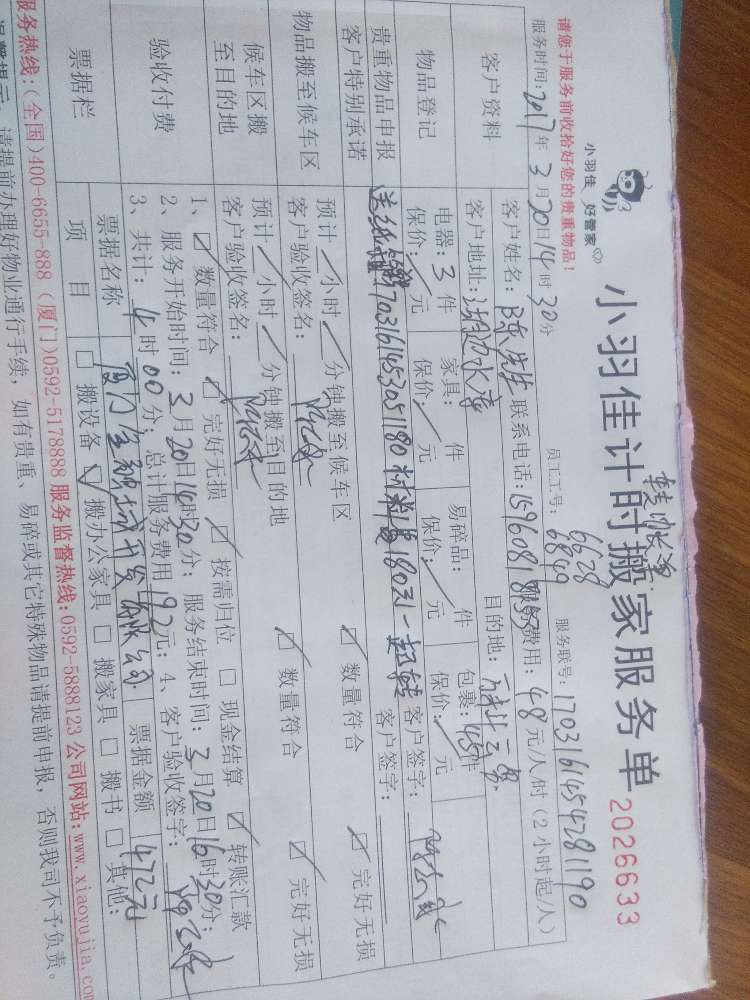 请您于服务前收拾好您的贵重物品!
小羽佳 好管家
转帐单
小羽佳计时搬家服务单
2026633
员工工号: 6628 6849
服务联号: 17031614542811190
服务时间: 2017年3月20日14时30分
服务费用: 48元/人/时 (2小时起/人)
客户资料
客户姓名: 陈先生 联系电话:
客户地址: 目的地:
物品登记
电器: 3件 家具: 件 易碎品: 件 包裹: 45件
保价: 元 保价: 元 保价: 元 保价: 元
贵重物品申报
客户特别承诺
客户签字:
客户签字:
物品搬至候车区
预计 小时 分钟搬至候车区 数量符合 完好无损
客户验收签名:
候车区搬至目的地
预计 小时 分钟搬至目的地 数量符合 完好无损
客户验收签名:
验收付费
1、 数量符合 完好无损 按需归位 现金结算 转账汇款
2、服务开始时间: 3月20日14时30分; 服务结束时间: 3月20日16时30分;
3、共计: 4时00分; 总计服务费用192元; 4、客户验收签字:
票据栏
票据名称 票据金额 472元
项目 搬设备 搬办公家具 搬家具 搬书 其他:
服务热线:(全国)400-6655-888 (厦门)0592-5178888 服务监督热线:0592-5888123 公司网站:www.xiaoyujia.com
请提前办理好物业通行手续, 如有贵重、易碎或其它特殊物品请提前申报, 否则我司不予负责。